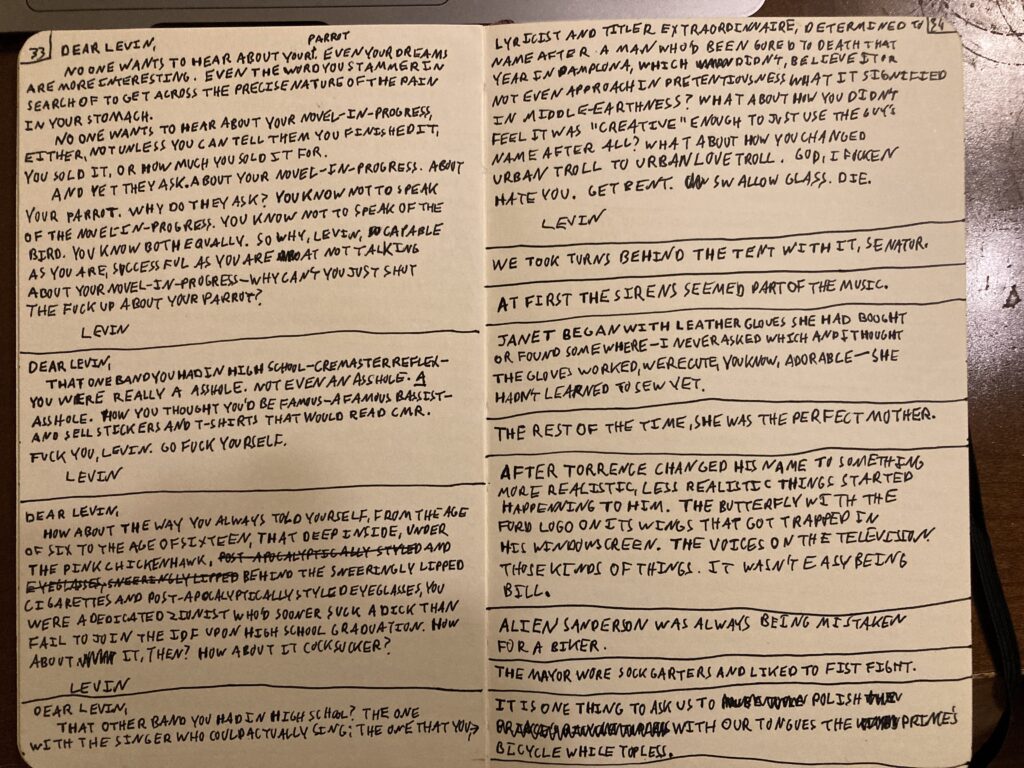 33
DEAR LEVIN,
PARROT
NO ONE WANTS TO HEAR ABOUT YOUR. EVEN YOUR DREAMS
ARE MORE INTERESTING. EVEN THE WORD YOU STAMMER IN
SEARCH OF TO GET ACROSS THE PRECISE NATURE OF THE PAIN
IN YOUR STOMACH.
NO ONE WANTS TO HEAR ABOUT YOUR NOVEL-IN-PROGRESS,
EITHER, NOT UNLESS YOU CAN TELL THEM YOU FINISHED IT,
YOU SOLD IT, OR HOW MUCH YOU SOLD IT FOR.
AND YET THEY ASK. ABOUT YOUR NOVEL-IN-PROGRESS. ABOUT
YOUR PARROT. WHY DO THEY ASK? YOU KNOW NOT TO SPEAK
OF THE NOVEL-IN-PROGRESS. YOU KNOW NOT TO SPEAK OF THE
BIRD. YOU KNOW BOTH EQUALLY. SO WHY, LEVIN, SO CAPABLE
AS YOU ARE, SUCCESSFUL AS YOU ARE AT NOT TALKING
ABOUT YOUR NOVEL-IN-PROGRESS—WHY CAN'T YOU JUST SHUT
THE FUCK UP ABOUT YOUR PARROT?
LEVIN
DEAR LEVIN,
THAT ONE BAND YOU HAD IN HIGH SCHOOL—CREMASTER REFLEX—
YOU WERE REALLY A ASSHOLE. NOT EVEN AN ASSHOLE. A
ASSHOLE. HOW YOU THOUGHT YOU'D BE FAMOUS—A FAMOUS BASSIST—
AND SELL STICKERS AND T-SHIRTS THAT WOULD READ CMR.
FUCK YOU, LEVIN. GO FUCK YOURSELF.
LEVIN
DEAR LEVIN,
HOW ABOUT THE WAY YOU ALWAYS TOLD YOURSELF, FROM THE AGE
OF SIX TO THE AGE OF SIXTEEN, THAT DEEP INSIDE, UNDER
THE PINK CHICKENHAWK, POST-APOCALYPTICALLY STYLED AND
EYEGLASSES, SNEERINGLY LIPPED BEHIND THE SNEERINGLY LIPPED
CIGARETTES AND POST-APOCALYPTICALLY STYLED EYEGLASSES, YOU
WERE A DEDICATED ZIONIST WHO'D SOONER SUCK A DICK THAN
FAIL TO JOIN THE IDF UPON HIGH SCHOOL GRADUATION. HOW
ABOUT IT, THEN? HOW ABOUT IT COCKSUCKER?
LEVIN
DEAR LEVIN,
THAT OTHER BAND YOU HAD IN HIGH SCHOOL? THE ONE
WITH THE SINGER WHO COULD ACTUALLY SING; THE ONE THAT YOU,
34
LYRICIST AND TITLER EXTRAORDINNAIRE, DETERMINED TO
NAME AFTER A MAN WHO'D BEEN GORED TO DEATH THAT
YEAR IN PAMPLONA, WHICH DIDN'T, BELIEVE IT OR
NOT EVEN APPROACH IN PRETENTIOUSNESS WHAT IT SIGNIFIED
IN MIDDLE-EARTHNESS? WHAT ABOUT HOW YOU DIDN'T
FEEL IT WAS "CREATIVE" ENOUGH TO JUST USE THE GUY'S
NAME AFTER ALL? WHAT ABOUT HOW YOU CHANGED
URBAN TROLL TO URBAN LOVE TROLL. GOD, I FUCKEN
HATE YOU. GET BENT. SWALLOW GLASS. DIE.
LEVIN
WE TOOK TURNS BEHIND THE TENT WITH IT, SENATOR.
AT FIRST THE SIRENS SEEMED PART OF THE MUSIC.
JANET BEGAN WITH LEATHER GLOVES SHE HAD BOUGHT
OR FOUND SOMEWHERE—I NEVER ASKED WHICH AND I THOUGHT
THE GLOVES WORKED, WERE CUTE, YOU KNOW, ADORABLE—SHE
HADN'T LEARNED TO SEW YET.
THE REST OF THE TIME, SHE WAS THE PERFECT MOTHER.
AFTER TORRENCE CHANGED HIS NAME TO SOMETHING
MORE REALISTIC, LESS REALISTIC THINGS STARTED
HAPPENNING TO HIM. THE BUTTERFLY WITH THE
FORD LOGO ON ITS WINGS THAT GOT TRAPPED IN
HIS WINDOWSCREEN. THE VOICES ON THE TELEVISION.
THOSE KINDS OF THINGS. IT WASN'T EASY BEING
BILL.
ALIEN SANDERSON WAS ALWAYS BEING MISTAKEN
FOR A BIKER.
THE MAYOR WORE SOCK GARTERS AND LIKED TO FIST FIGHT.
IT IS ONE THING TO ASK US TO POLISH
WITH OUR TONGUES THE PRINCE'S
BICYCLE WHILE TOPLESS.